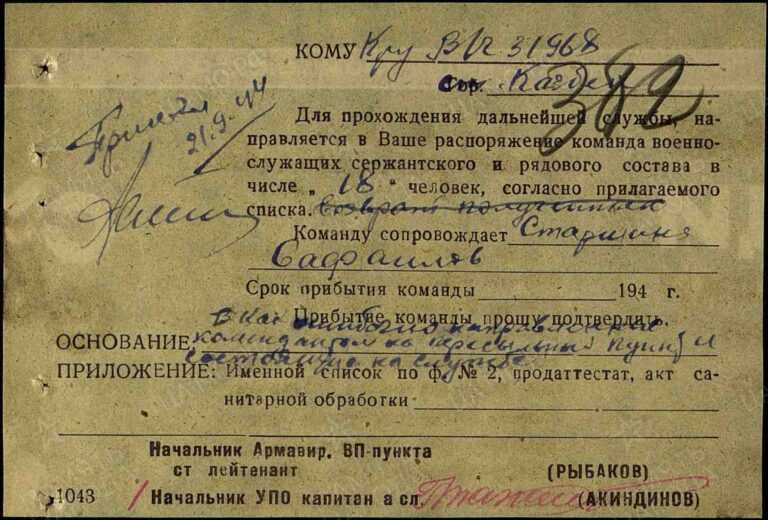 КОМУ Кру В/ч 31968
Казбек
382
Принял
21.9.44
Для прохождения дальнейшей службы, на-
правляется в Ваше распоряжение команда военно-
служащих сержантского и рядового состава в
числе „ 18 “ человек, согласно прилагаемого
списка.
Команду сопровождает Старшина
Сафаилов
Срок прибытия команды 194 г.
Прибытие команды прошу подтвердить.
ОСНОВАНИЕ: ошибочно направленных
комендантом на пересыльный пункт и
состоящую на службе
ПРИЛОЖЕНИЕ: Именной список по ф. № 2, продаттестат, акт са-
нитарной обработки
Начальник Армавир. ВП-пункта
ст лейтенант (РЫБАКОВ)
1043 Начальник УПО капитан а сл. (АКИНДИНОВ)